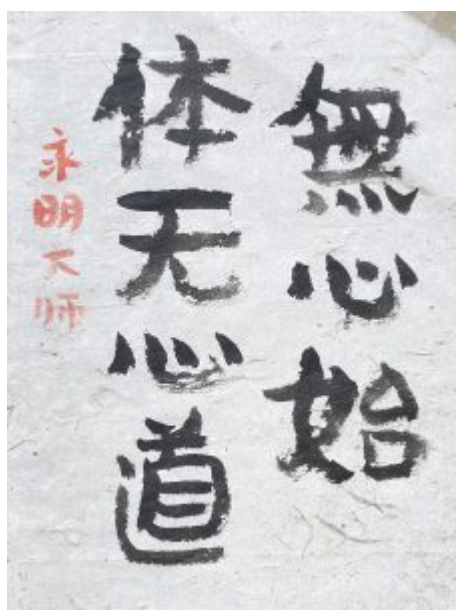 無心始
体无心道
永明大师